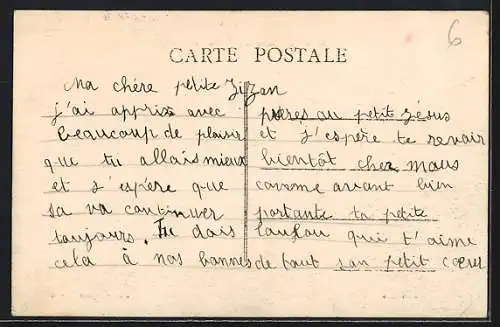 CARTE POSTALE
6
Ma chère petite Zizan
j'ai appris avec
beaucoup de plaisir
que tu allais mieux
et j'espère que
sa va continuer
toujours. Tu dois
cela à nos bonnes
prières au petit Jésus
et j'espère te revoir
bientôt chez nous
comme avant bien
portante ta petite
Loulou qui t'aime
de tout son petit cœur